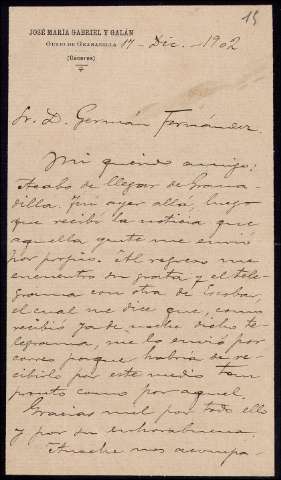 15
JOSÉ MARÍA GABRIEL Y GALÁN
GUIJO DE GRANADILLA 17 - Dic. - 1902
(Cáceres)
Sr. D. Germán Fernández.
Mi querido amigo:
Acabo de llegar de Grana-
dilla. Fuí ayer allá, luego
que recibí la noticia que
aquella gente me envió
por propio. Al regreso me
encuentro su grata y el tele-
grama con otra de Escobar,
el cual me dice que, como
recibió ya de noche dicho te-
legrama, me lo envió por
correo porque habría de re-
cibirlo por este medio tan
pronto como por aquel.
Gracias mil por todo ello
y por su enhorabuena.
Anoche nos acompa-